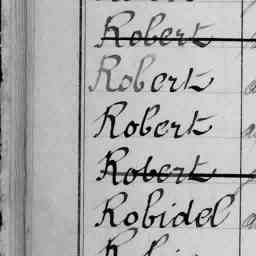 Robert
Robert
Robert
Robert
Robidel